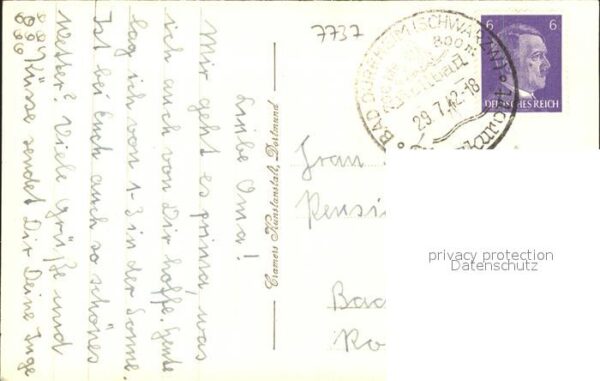 Liebe Oma!
Mir geht es prima, was
ich auch von Dir hoffe. Heute
lag ich von 1-3 in der Sonne.
Ist bei Euch auch so schönes
Wetter? Viele Grüße und
Küsse sendet Dir Deine Inge
Cramers Kunstanstalt, Dortmund
7737
BAD DÜRRHEIM (SCHWARZW)
800 m
29.7.42-18
6 6
DEUTSCHES REICH
Frau
Pensi
Bad
privacy protection
Datenschutz